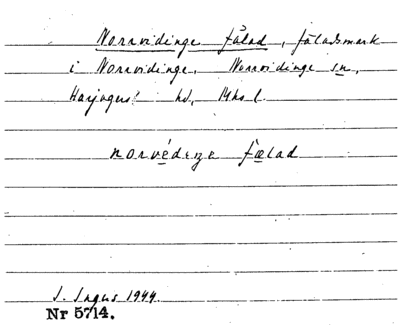 Norrvidinge fålad, fäladsmark
i Norrvidinge, Norrvidinge sn,
Harjagers hd, Mhs l.
norvédeze fælad
J. Ingers 1944.
Nr 5714.